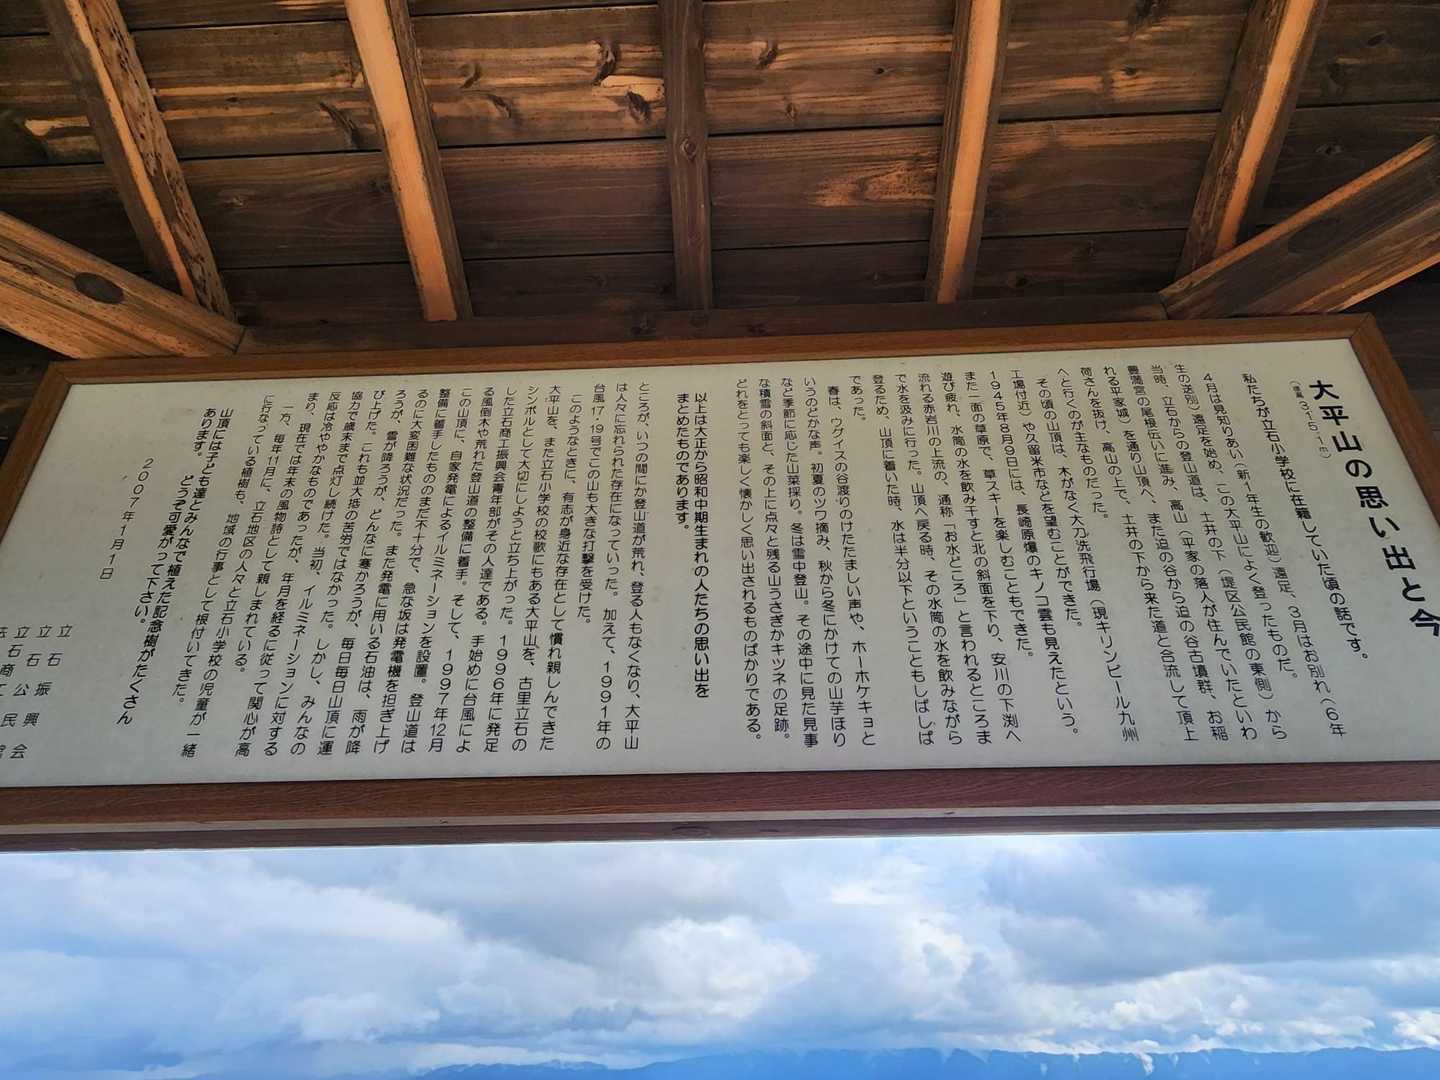 大平山の思い出と今
(標高 315.1m)
私たちが立石小学校に在籍していた頃の話です。
4月は見知りあい(新1年生の歓迎)遠足、3月はお別れ(6年
生の送別)遠足を始め、この大平山によく登ったものだ。
当時、立石からの登山道は、土井の下(堤区公民館の東側)から
豊満宮の尾根伝いに進み、高山(平家の落人が住んでいたといわ
れる平家城)を通り山頂へ、また迫の谷から迫の谷古墳群、お稲
荷さんを抜け、高山の上で、土井の下から来た道と合流して頂上
へと行くのが主なものだった。
その頃の山頂は、木がなく大刀洗飛行場(現キリンビール九州
工場付近)や久留米市などを望むことができた。
1945年8月9日には、長崎原爆のキノコ雲も見えたという。
また一面の草原で、草スキーを楽しむこともできた。
遊び疲れ、水筒の水を飲み干すと北の斜面を下り、安川の下渕へ
流れる赤岩川の上流の、通称「お水どころ」と言われるところま
で水を汲みに行った。山頂へ戻る時、その水筒の水を飲みながら
登るため、山頂に着いた時、水は半分以下ということもしばしば
であった。
春は、ウグイスの谷渡りのけたたましい声や、ホーホケキョと
いうのどかな声。初夏のツワ摘み、秋から冬にかけての山芋ほり
など季節に応じた山菜採り。冬は雪中登山。その途中に見た見事
な積雪の斜面と、その上に点々と残る山うさぎかキツネの足跡。
どれをとっても楽しく懐かしく思い出されるものばかりである。
以上は大正から昭和中期生まれの人たちの思い出を
まとめたものであります。
ところが、いつの間にか登山道が荒れ、登る人もなくなり、大平山
は人々に忘れられた存在になっていった。加えて、1991年の
台風17・19号でこの山も大きな打撃を受けた。
このようなときに、有志が身近な存在として慣れ親しんできた
大平山を、また立石小学校の校歌にもある大平山を、古里立石の
シンボルとして大切にしようと立ち上がった。1996年に発足
した立石商工振興会青年部がその人達である。手始めに台風によ
る風倒木や荒れた登山道の整備に着手。そして、1997年12月
この山頂に、自家発電によるイルミネーションを設置。登山道は
整備に着手したもののまだ不十分で、急な坂は発電機を担ぎ上げ
るのに大変困難な状況だった。また発電に用いる石油は、雨が降
ろうが、雪が降ろうが、どんなに寒かろうが、毎日毎日山頂に運
び上げた。これも並大抵の苦労ではなかった。しかし、みんなの
協力で歳末まで点灯し続けた。当初、イルミネーションに対する
反応は冷ややかなものであったが、年月を経るに従って関心が高
まり、現在では年末の風物詩として親しまれている。
一方、毎年11月に、立石地区の人々と立石小学校の児童が一緒
に行なっている植樹も、地域の行事として根付いてきた。
山頂には子ども達とみんなで植えた記念樹がたくさん
あります。 どうぞ可愛がって下さい。
2007年1月1日
立石振興会
立石公民館